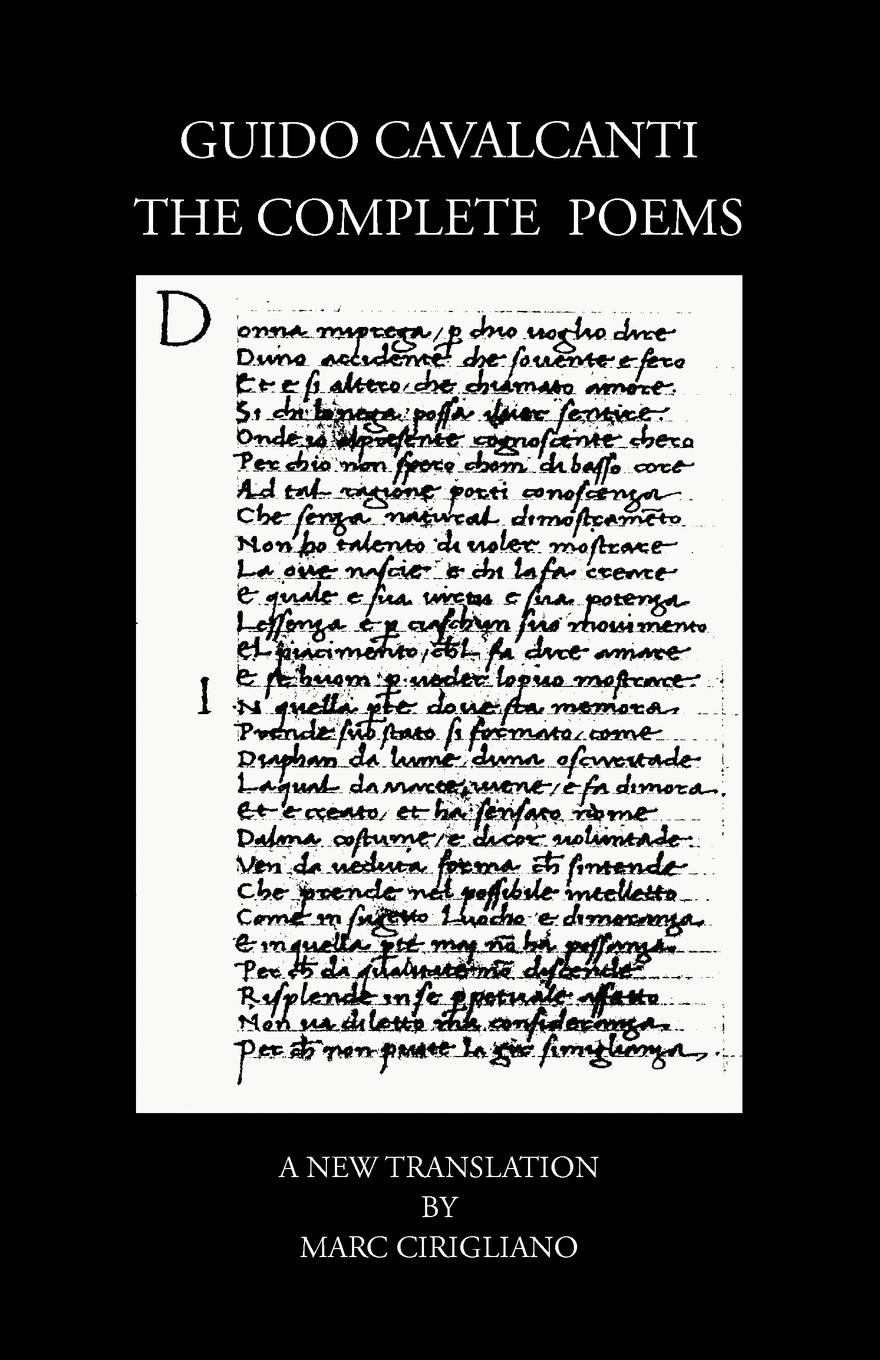 GUIDO CAVALCANTI
THE COMPLETE POEMS
D
onna mi prega / p̱ chio uoglio dire
Duno accidente che souente e fero
Et e si altero / che chiamato amore.
Si chi lo nega possa sentire.
Onde io alpresente cognoscente chero
Per chio non spero chom di basso core
Ad tal ragione porti conoscenza
Che senza natural dimostram̄eto
Non ho talento di uoler mostrare
La oue nascie e chi lafa creare
E quale e sua uirtu e sua potenza
Lessenza e p̱ ciaschun suo mouimento
El piacimento / fa dire amare
E se huom p̱ ueder lopuo mostrare.
I
N quella pt̄e doue sta memora.
Prende suo stato si formato / come
Diaphan da lume / duna oscuritade
Laqual da marte, uiene / e fa dimora.
Et e creato / et ha sensato nome
Dalma costume / e dicor uoluntade
Ven da ueduta forma ch̄ sintende
Che prende nel possibile intelletto
Come in sugetto Luocho e dimoranza.
E in quella pt̄e mai nō ha possanza.
Per ch̄ da qualitate nō discende
Risplende in se p̱petuale affetto
Non ua diletto ma consideranza.
Per ch̄ non puote la gir simiglianza.
A NEW TRANSLATION
BY
MARC CIRIGLIANO